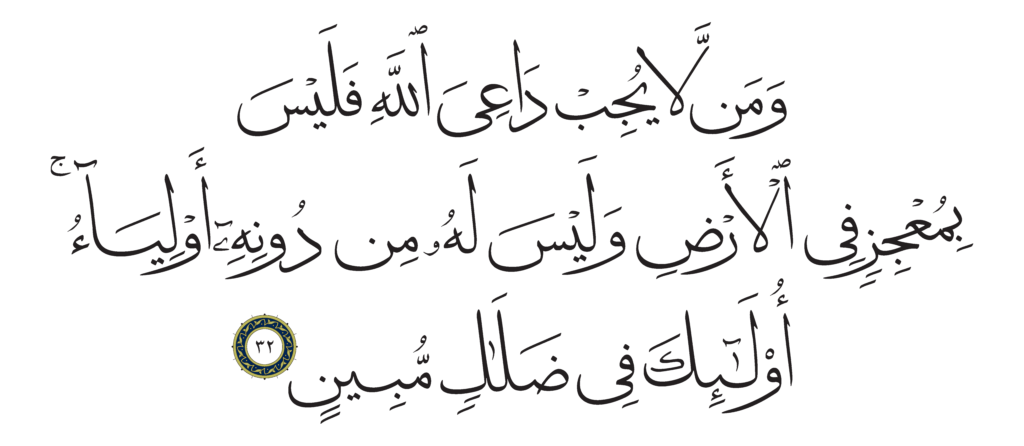 وَمَن لَّا يُجِبْ دَاعِىَ ٱللَّهِ فَلَيْسَ
بِمُعْجِزٍ فِى ٱلْأَرْضِ وَلَيْسَ لَهُۥ مِن دُونِهِۦٓ أَوْلِيَآءُ ۚ
أُو۟لَـٰٓئِكَ فِى ضَلَـٰلٍ مُّبِينٍ ٣٢